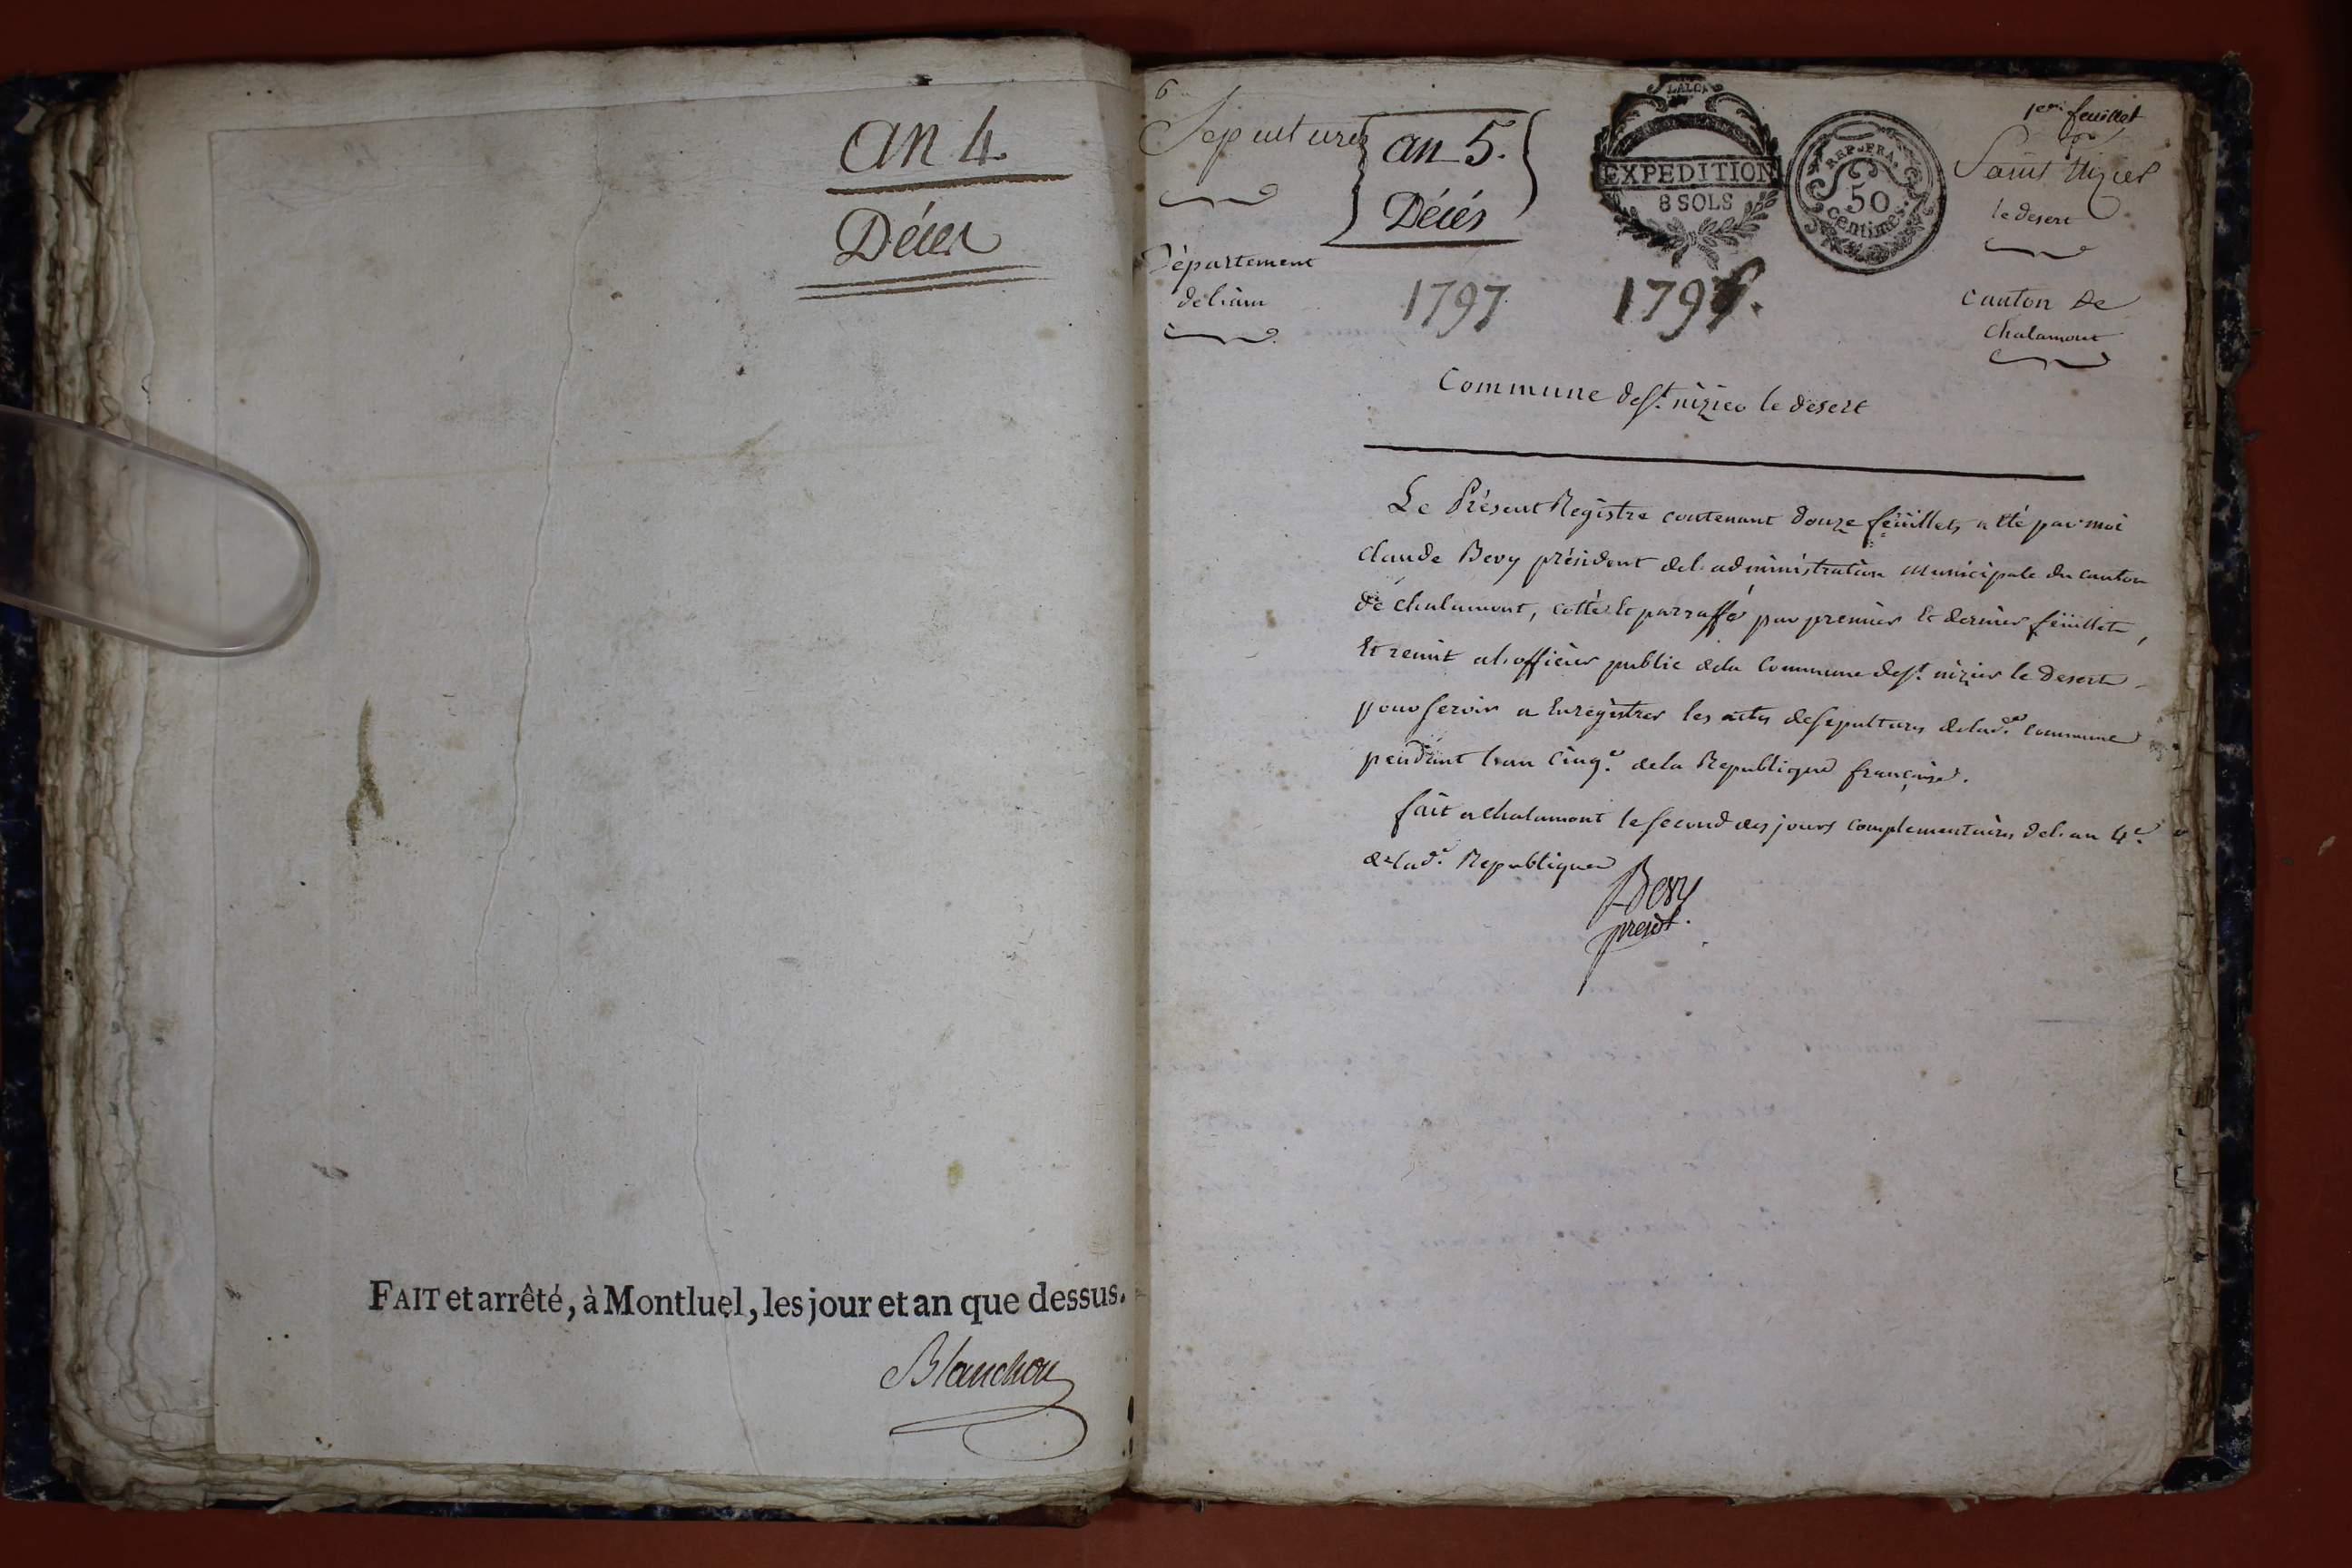 an 4.
Décès
FAIT et arrêté, à Montluel, les jour et an que dessus.
Blanchon
6
Sepultures
an 5.
Décés
EXPEDITION
8 SOLS
REP. FRA.
50
centimes.
1er. feuillet
Saint Nizier
le desert
Département
de l'ain
1797
canton de
chalamont
Commune de st. nizier le desert
Le Présent Registre contenant douze feüillets a êté par moi
Claude Bevy président de l'administration Municipale du canton
de Chalamont, cotté et parraffé par premier et dernier feüillet,
et remit a l'officier public de la Commune de st. nizier le desert
pour servir a enregistrer les actes de sepultures de lade. commune
pendant l'an cinqe. de la Republique française.
fait a chalamont le second des jours complementaires de l'an 4e.
de lade. Republique
Bevy
presidt.